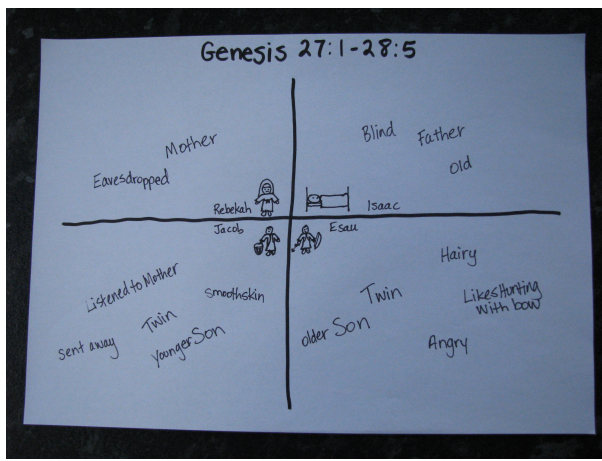 Genesis 27:1-28:5
Mother
Eavesdropped
Rebekah
Blind
Father
Old
Isaac
Jacob
Listened to Mother
smoothskin
Twin
sent away
younger Son
Esau
Hairy
Twin
Likes Hunting
with bow
older Son
Angry